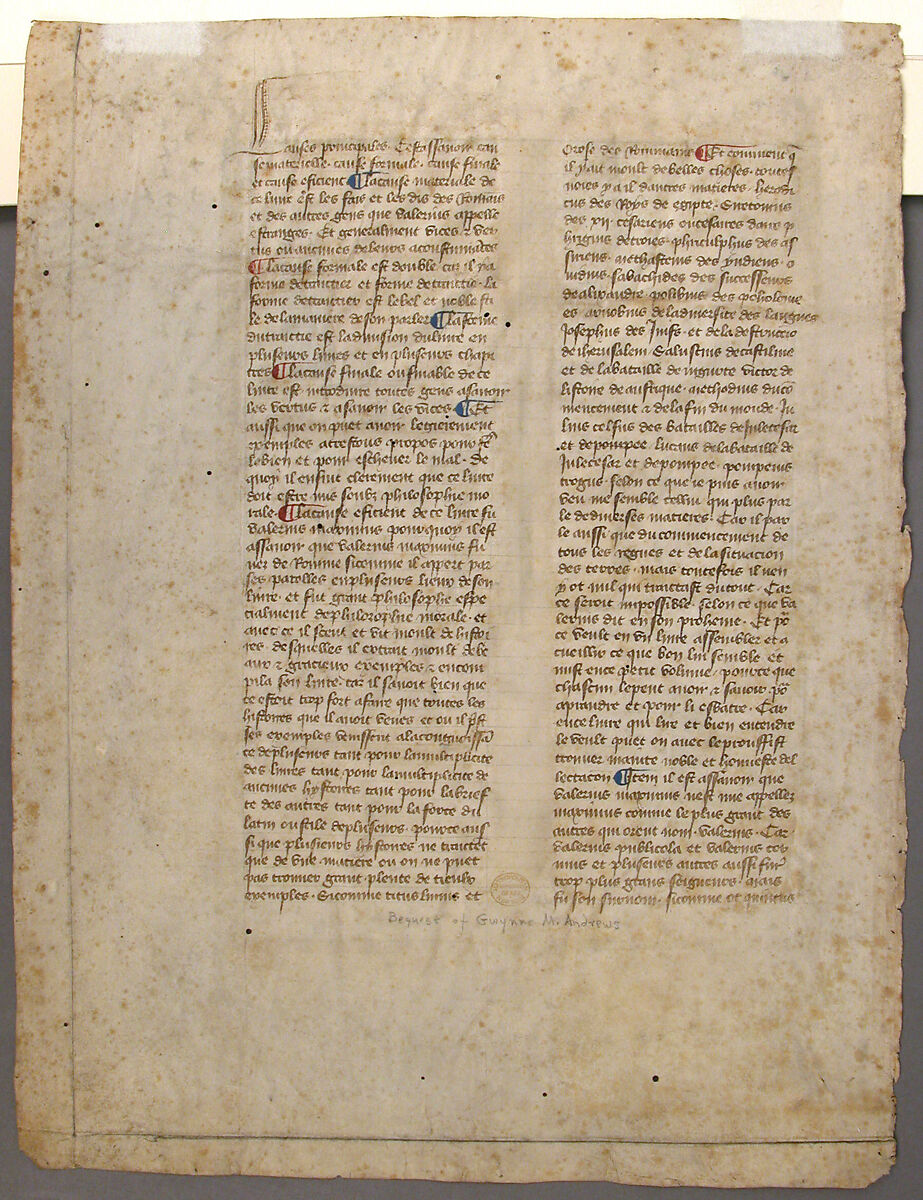 auses principales. Cestassavoir cau
se materielle. cause formale. cause finale
et cause efficient ¶ La cause materiale de
ce livre est les fais et les dis des Rommains
et des autres gens que valerius appelle
estranges. Et generalment vices & ver
tus ou aucunes de leurs acoustumances
¶ La cause formale est double car il y a
forme de traictier et forme de traictie. la
forme de traictier est le bel et noble sti
le de la maniere de son parler ¶ La forme
du traictie est la division du livre en
pluseurs livres et en pluseurs chapi
tres ¶ La cause finale ou finable de ce
livre est introduire toutes gens a savoir
les vertus & a savoir les vices. ¶ Et
aussi que on puet avoir legierement
exemples a trestous propos pour fe
le bien et pour eschever le mal. De
quoy il ensuit clerement que ce livre
doit estre mis soubz philosophie mo
rale. ¶ La cause efficient de ce livre fu
valerius maximus pourquoy il est
assavoir que valerius maximus fu
nez de Romme sicomme il appert par
ses parolles en pluseurs lieux de son
livre. et fut grant philosophe espe
cialment de philosophie morale. et
avec ce il sceut et vit moult de histor
ies. desquelles il extrait moult de be
aux & gracieux exemples & en com
pila son livre car il savoit bien que
ce estoit trop fort a faire que toutes les
histoires que il avoit veues et ou il
ses exemples venissent a la congnoissan
ce de pluseurs tant pour la multiplicite
des livres tant pour la multiplicite de
aucunes hystoires tant pour la brief
te des autres tant pour la force du
latin ou stile de pluseurs. pource aus
si que pluseurs hystoires ne traictent
que de une matiere ou on ne puet
pas trouver grant plente de tieulx
exemples. Sicomme titus livius et
Orose des Rommains ¶ Et comment q
il y ait moult de belles choses. toutes
voies y a il d autres matieres. herodo
tus des Roys de egipte. Suetonius
des xii. cesariens ou cesaires dares p
hrigius de troies. des as
siriens. methastenes des yndiens. o
vidius. sabachides des successeurs
de alixandre. polibius des ptholome
es. arnobius de la diversite des langues
Josephus des Juifs. et de la destruccio
de iherusalem. Salustius de catiline
et de la bataille de iugurte. victor de
listoire de aufrique. methodius du co
mencement & de la fin du monde. Ju
lius celsus des batailles de Julecesar
et de pompee. lucans de la bataille de
Julecesar et de pompee. pompeius
trogus. selon ce que je puis avoir
veu me semble cellui qui plus par
le de diverses matieres. Car il par
le aussi que du commencement de
tous les regnes et de la situacion
des terres. mais toutesfois il nen
y ot nul qui traictast du tout. Car
ce seroit impossible. selon ce que va
lerius dit en son proheme. Et po
ce veult en un livre assembler et a
cueillir ce que bon lui semble et
mist en ce petit volume. pource que
chascun le peut avoir & savoir po
aprandre et pour li esbatre. Car
en ce livre qui lire et bien entendre
le veult puet on avec le prouffit
trouver mainte noble et honneste del
lectacion ¶ Item il est assavoir que
valerius maximus nest mie appellez
maximus comme le plus grant des
autres qui orent nom valerius. Car
valerius publicola et valerius cor
vinus et pluseurs autres aussi furent
trop plus grans seigneurs. mais
fu son surnom. sicomme ot quintus
Bequest of Gwynne M. Andrews